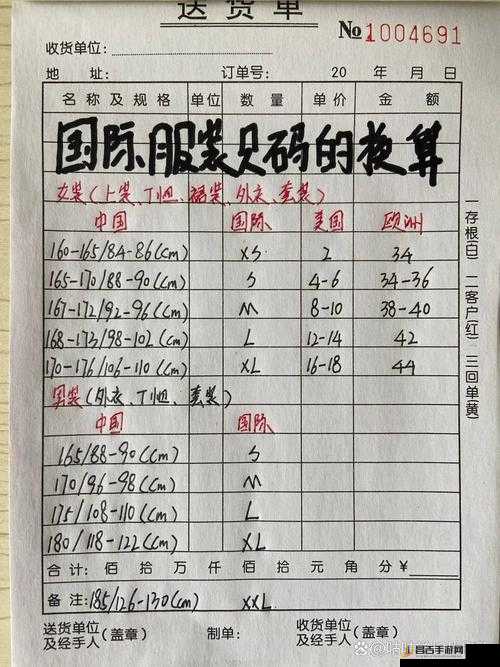 送货单
№1004691
收货单位:
地 址: 订单号: 20 年 月 日
名称及规格 单位 数量 单价 金额
国际服装尺码的换算
女装(上装、T恤、裙装、外衣、套装)
中国 国际 美国 欧洲
160-165/84-86(cm) XS 2 34
165-170/88-90(cm) S 4-6 34-36
167-172/92-96(cm) M 8-10 38-40
168-173/98-102(cm) L 12-14 42
170-176/106-110(cm) XL 16-18 44
男装(外衣、T恤、套装)
中国 国际
165/88-90(cm) S
170/96-98(cm) M
175/108-110(cm) L
180/118-122(cm) XL
合计: 佰 拾 万 仟 佰 拾 元 角 分 ¥
备注: 185/126-130(cm) XXL
送货单位及经手人(盖章) 制单: 收货单位及经手人(盖章)
一存根(白) 二客户(红) 三回单(黄)
宫吉手游网